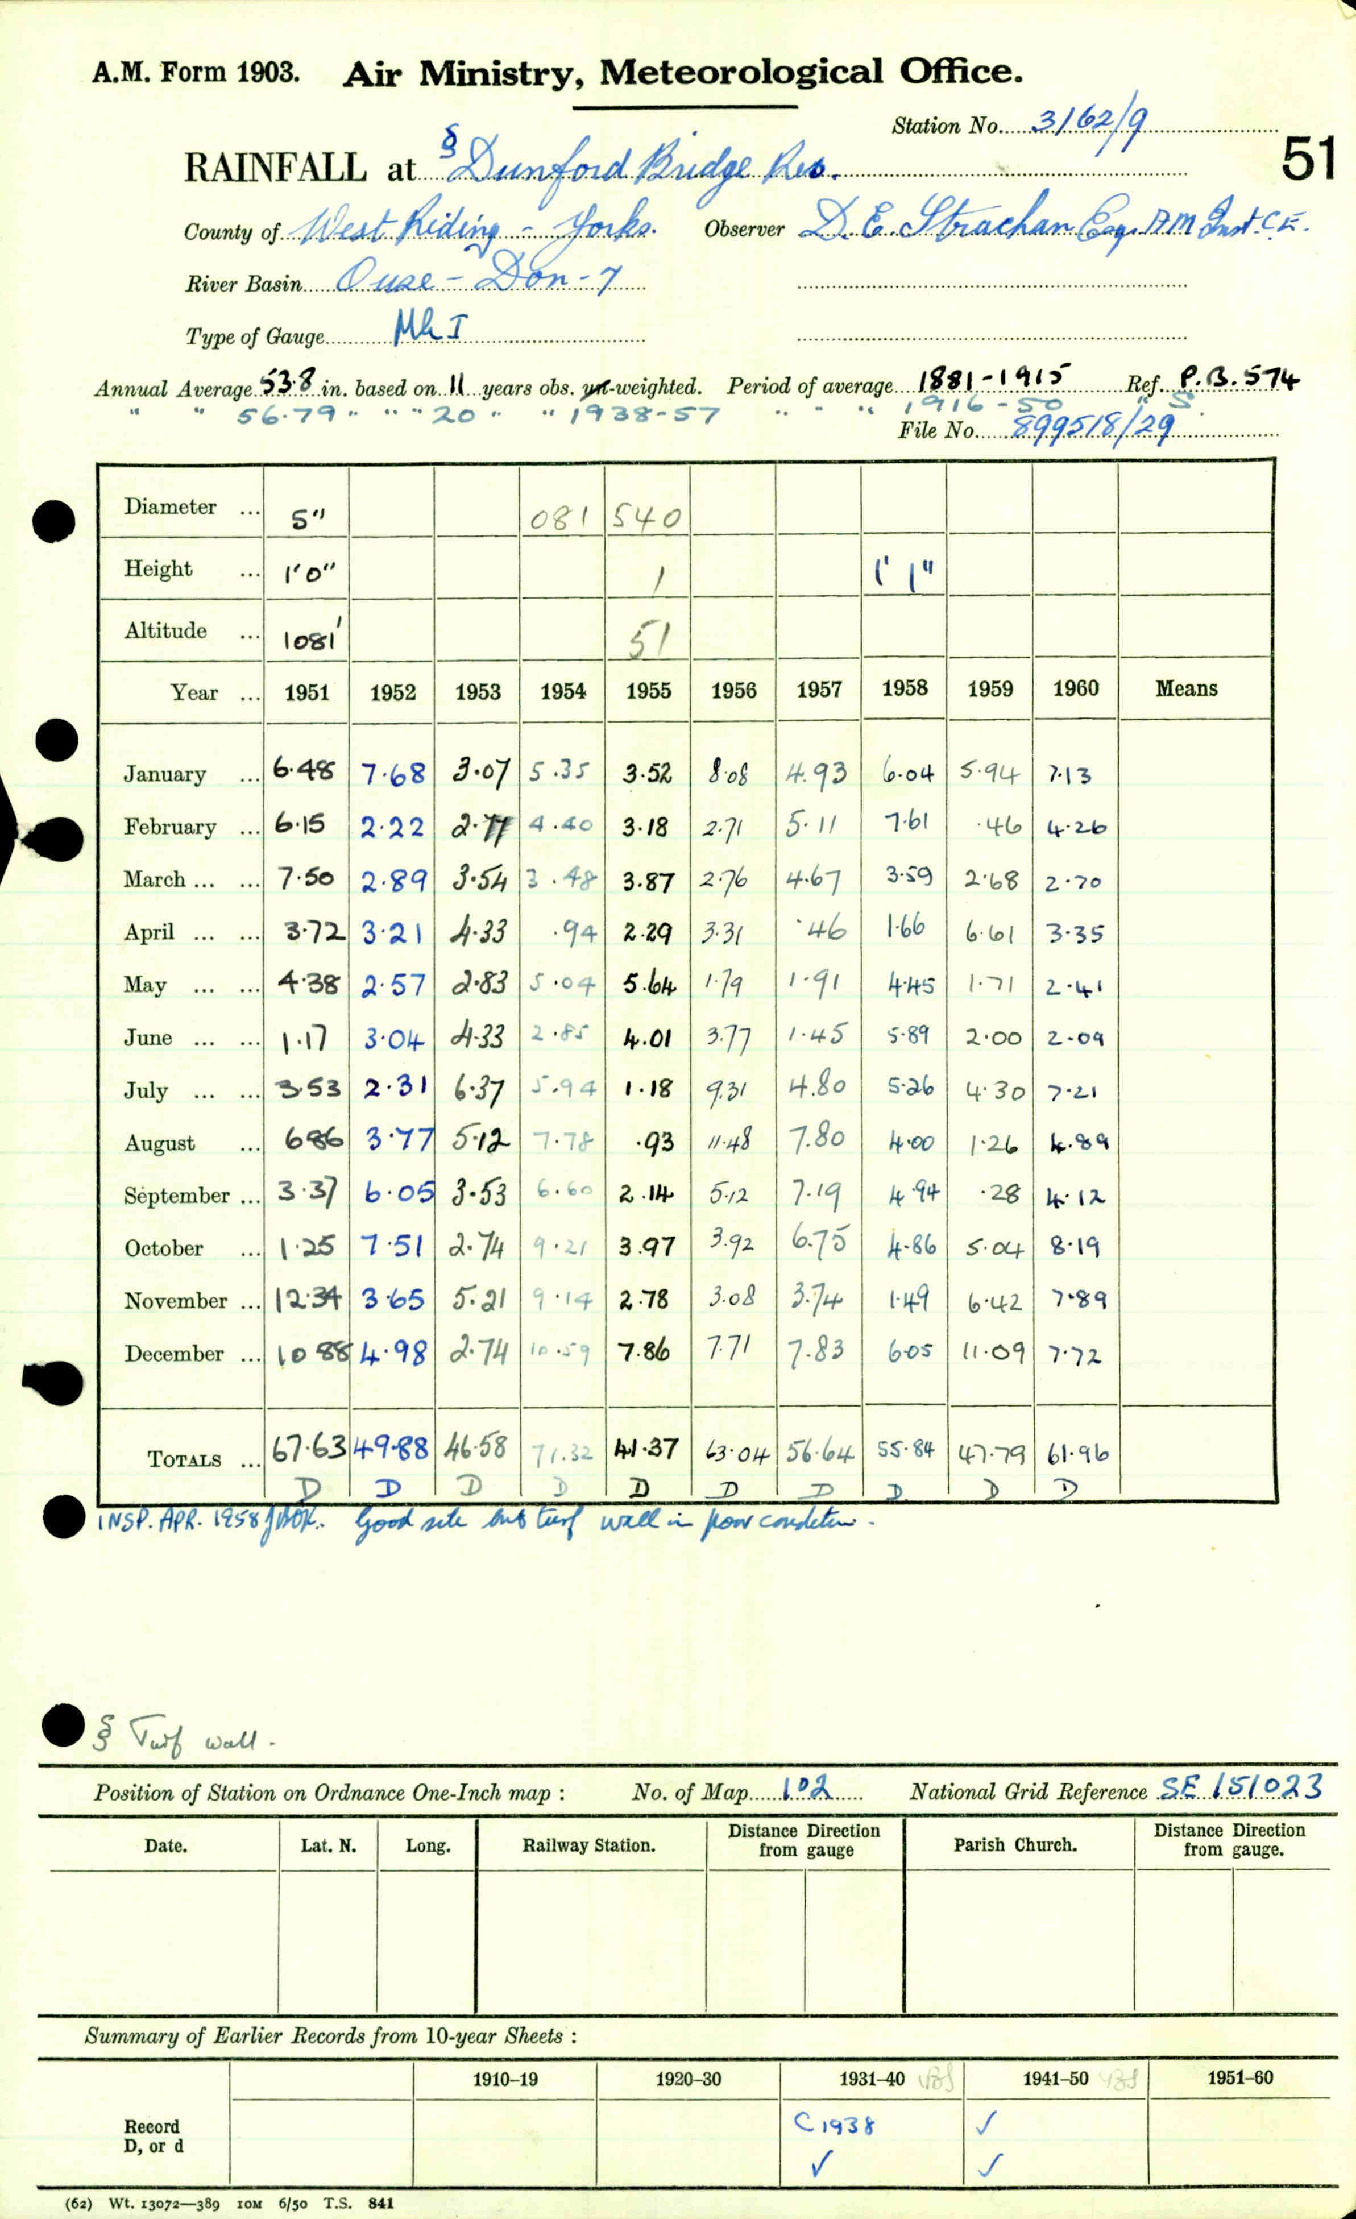 A.M. Form 1903. Air Ministry, Meteorological Office.
Station No. 3162/9
51
RAINFALL at § Dunford Bridge Res.
County of West Riding - Yorks. Observer D. E. Strachan Esq. A M Inst. C.E.
River Basin Ouse - Don - 7
Type of Gauge Mk I
Annual Average 53.8 in. based on 11 years obs. un-weighted. Period of average 1881-1915 Ref. P.B. 574
" " 56.79 " " " 20 " " 1938-57 " " " 1916-50 " S.
File No. 899518/29
Diameter ... 5" 081 540
Height ... 1'0" 1 1' 1"
Altitude ... 1081' 51
Year ... 1951 1952 1953 1954 1955 1956 1957 1958 1959 1960 Means
January ... 6.48 7.68 3.07 5.35 3.52 8.08 4.93 6.04 5.94 7.13
February ... 6.15 2.22 2.77 4.40 3.18 2.71 5.11 7.61 .46 4.26
March ... ... 7.50 2.89 3.54 3.48 3.87 2.76 4.67 3.59 2.68 2.70
April ... ... 3.72 3.21 4.33 .94 2.29 3.31 .46 1.66 6.61 3.35
May ... ... 4.38 2.57 2.83 5.04 5.64 1.79 1.91 4.45 1.71 2.41
June ... ... 1.17 3.04 4.33 2.85 4.01 3.77 1.45 5.89 2.00 2.09
July ... ... 3.53 2.31 6.37 5.94 1.18 9.31 4.80 5.26 4.30 7.21
August ... 6 86 3.77 5.12 7.78 .93 11.48 7.80 4.00 1.26 4.89
September ... 3.37 6.05 3.53 6.60 2.14 5.12 7.19 4.94 .28 4.12
October ... 1.25 7.51 2.74 9.21 3.97 3.92 6.75 4.86 5.04 8.19
November ... 12.34 3.65 5.21 9.14 2.78 3.08 3.74 1.49 6.42 7.89
December ... 10 88 4.98 2.74 10.59 7.86 7.71 7.83 6.05 11.09 7.72
TOTALS ... 67.63 49.88 46.58 71.32 41.37 63.04 56.64 55.84 47.79 61.96
D D D D D D D D D D
INSP. APR. 1958 Good site but turf wall in poor condition.
§ Turf wall.
Position of Station on Ordnance One-Inch map : No. of Map 102 National Grid Reference SE 151023
Date. Lat. N. Long. Railway Station. Distance from Direction gauge Parish Church. Distance from Direction gauge.
Summary of Earlier Records from 10-year Sheets :
1910–19 1920–30 1931–40 1941–50 1951–60
Record C 1938 ✓
D, or d ✓ ✓
(62) Wt. 13072—389 10M 6/50 T.S. 841